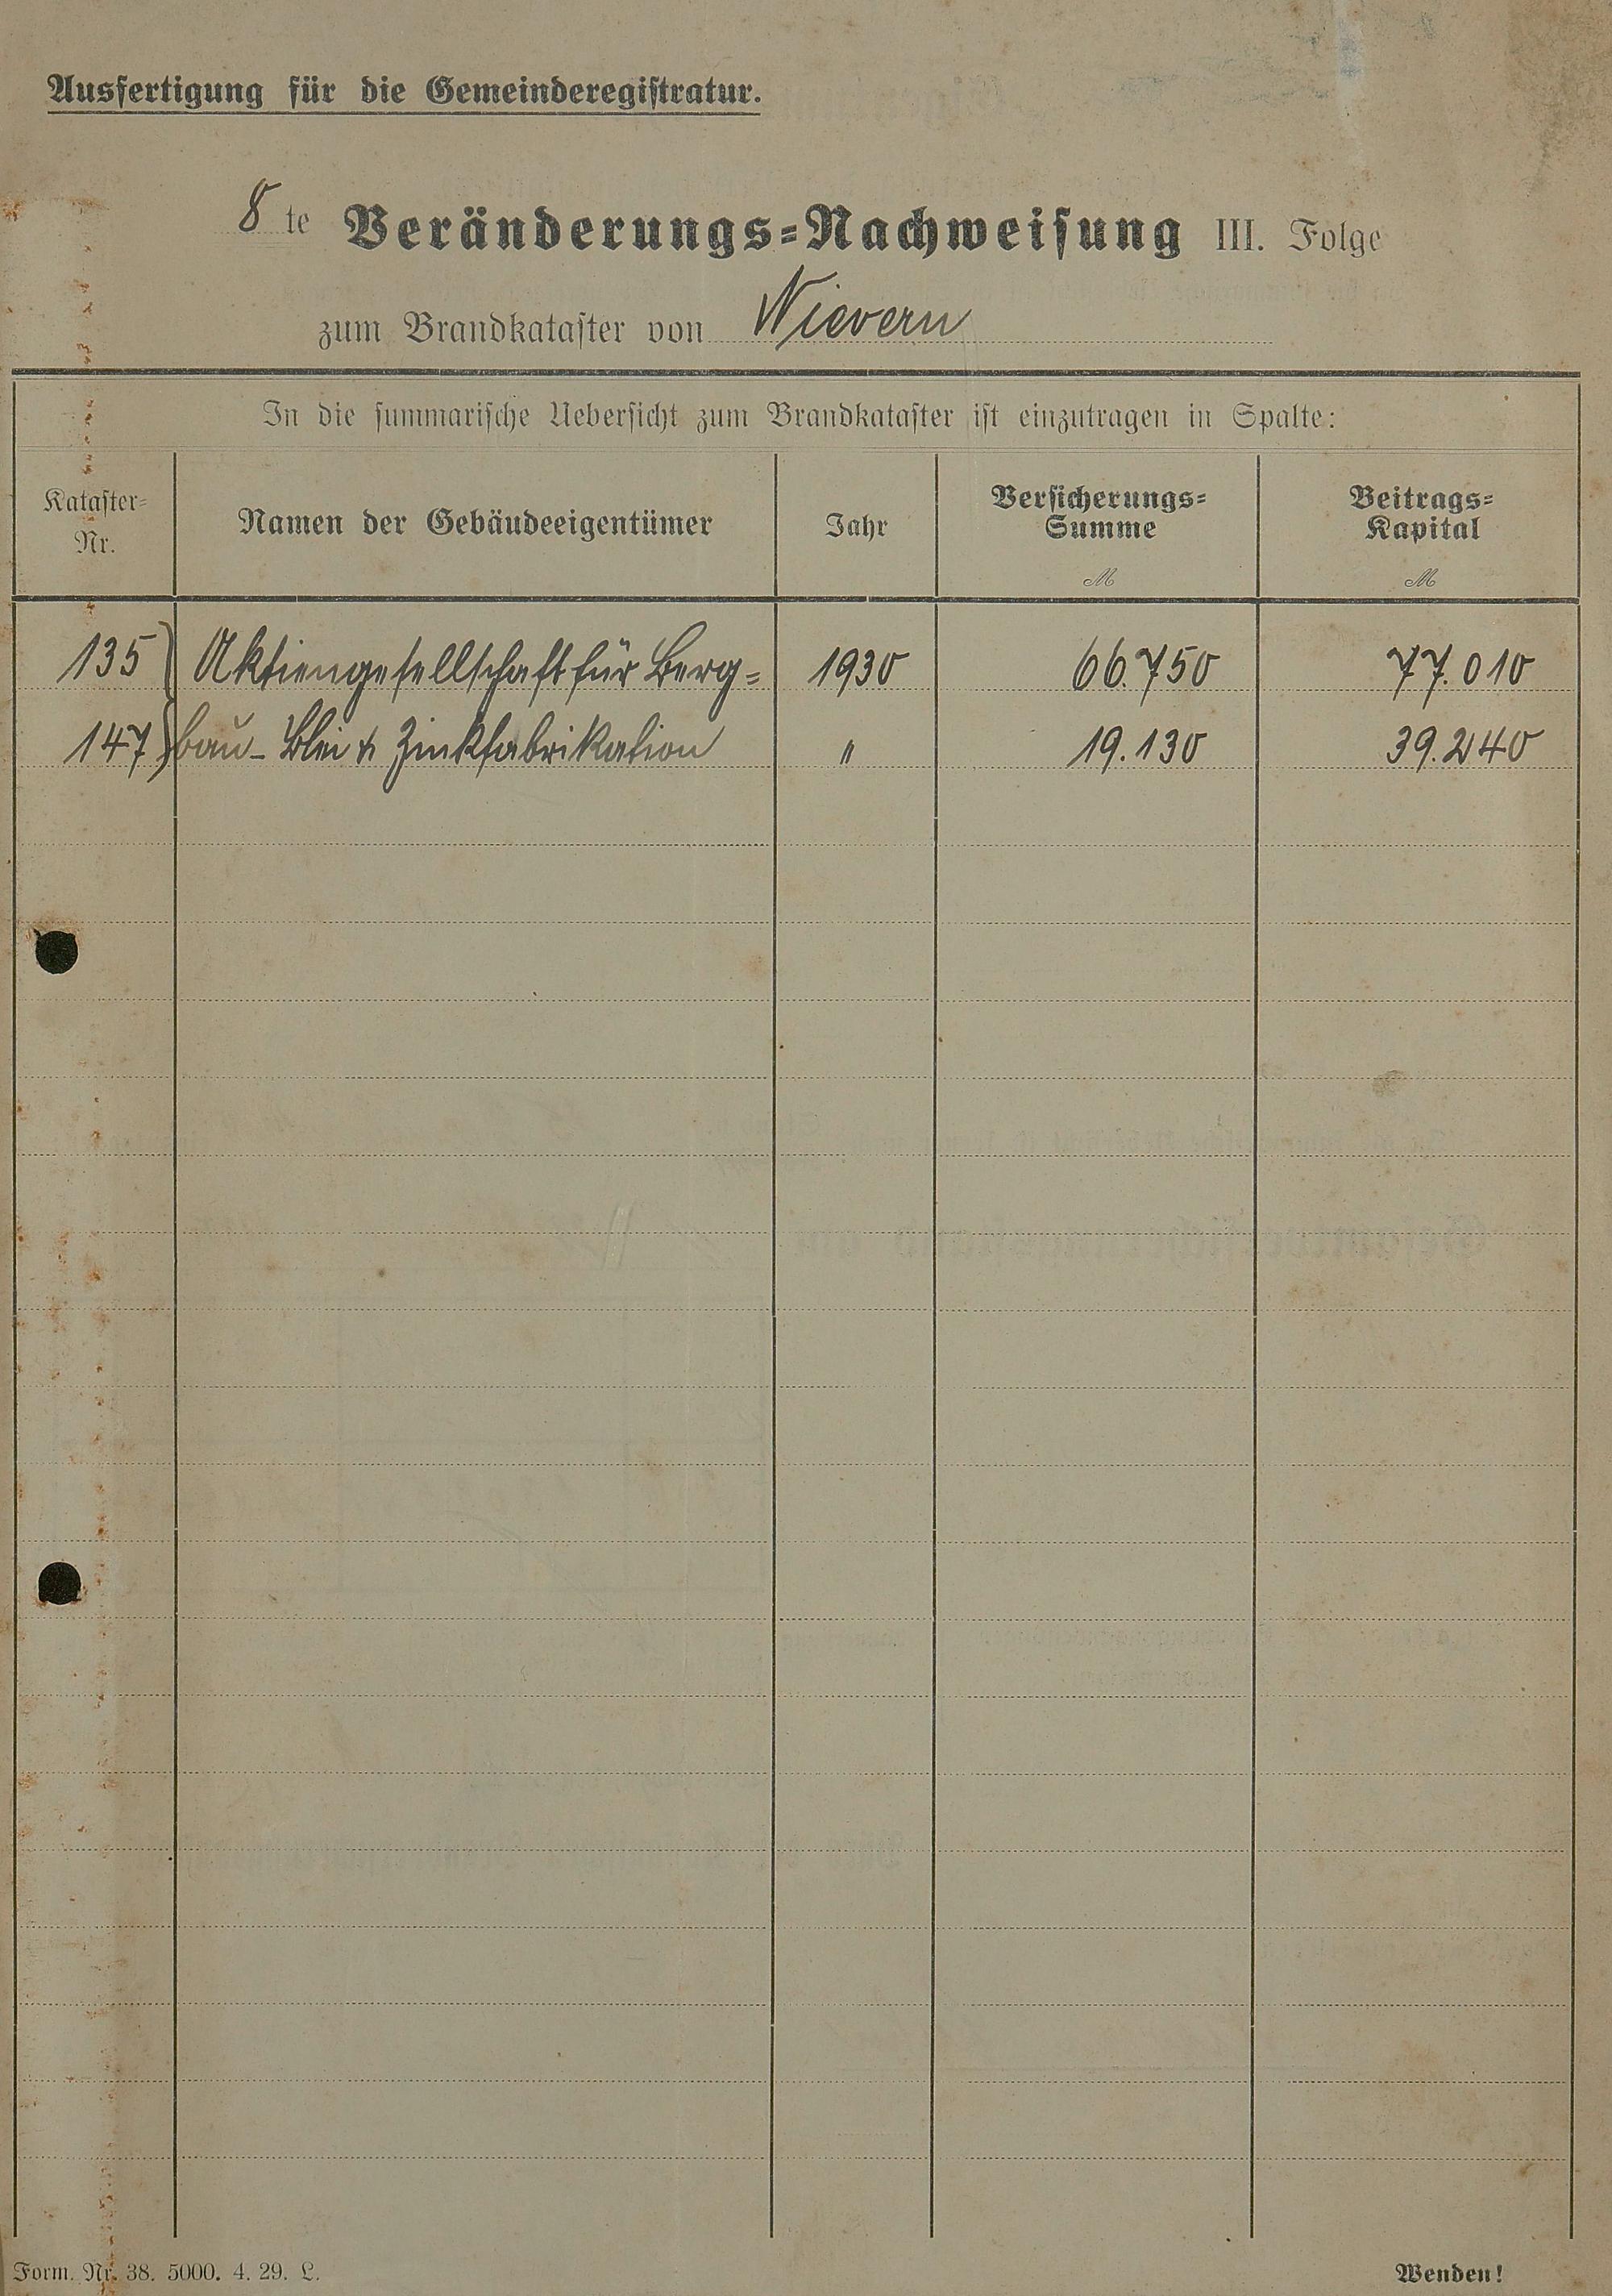 Ausfertigung für die Gemeinderegistratur.
8te Veränderungs-Nachweisung III. Folge
zum Brandkataster von Nievern
In die summarische Uebersicht zum Brandkataster ist einzutragen in Spalte:
Kataster-Nr. Namen der Gebäudeeigentümer Jahr Versicherungs-Summe M Beitrags-Kapital M
135 Aktiengesellschaft für Berg- 1930 66.750 77.010
147 bau- Blei & Zinkfabrikation " 19.130 39.240
Form. Nr. 38. 5000. 4. 29. L. Wenden!